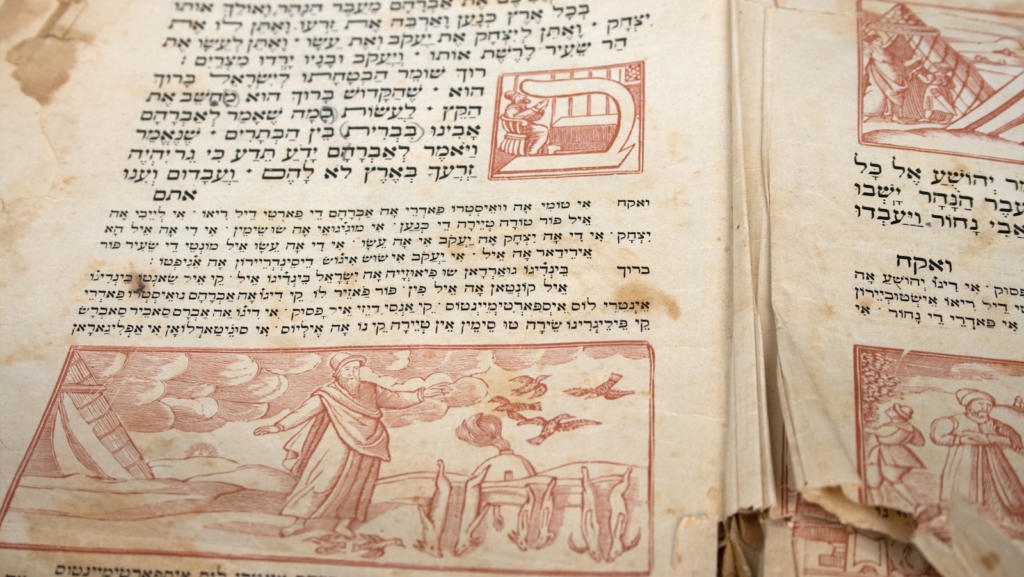 את אברהם מעבר הנהר ואולך אותו
בכל ארץ כנען וארבה את זרעו ואתן לו את
יצחק · ואתן ליצחק את יעקב ואת עשו · ואתן לעשו את
הר שעיר לרשת אותו · ויעקב ובניו ירדו מצרים :
ב
רוך שומר הבטחתו לישראל ברוך
הוא · שהקדוש ברוך הוא מחשב את
הקץ · לעשות כמה שאמר לאברהם
אבינו בברית בין הבתרים · שנאמר
ויאמר לאברהם ידע תדע כי גר יהיה
זרעך בארץ לא להם · ועבדום וענו
אתם
ואקח אי טומי אה וואיסטרו פאדרי אה אברהם די פארטי דיל ריאו · אי לייבי אה
איל פור טודה טיירה די כנען · אי מוגיגואי אה שו שימין · אי די אה איל אה
יצחק · אי די אה יצחק אה יעקב אי אה עשו · אי די אה עשו איל מונטי די שעיר פור
אירידאר אה איל · אי יעקב אי שוש איגוש דיסינדיירון אה אגיפטו :
ברוך בינדיגו גוארדאן שו פיאוזייה אה ישראל בינדיגו איל · קי איל שאנטו בינדיגו
איל קונטאן אה איל פין · פור פאזיר לו קי דיגו אה אברהם נואיסטרו פאדרי
אינטרי לוס איספארטימיינטוס · קי אנסי דיזי איל פסוק · אי דיגו אה אברהם סאביר סאברס
קי פיליגרינו שירה טו סימין אין טיירה קי נו אה איליוס · אי
יהושע אל כל
בעבר הנהר ישבו
אבי נחור ויעבדו
ואקח
פסוק · אי דיגו יהושע אה
דיל ריאו אישטוביירון
אי פאדרי די נחור · אי